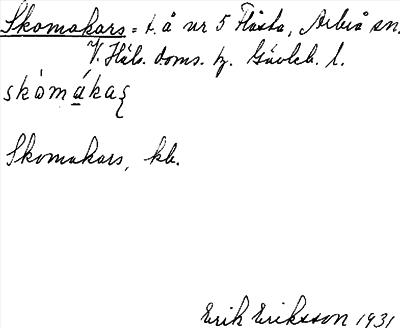 Skomakars = t. å nr 5 Flästa, Arbrå sn.
V. Häls. doms. tg. Gävleb. l.
skòmáka
Skomakars, kb.
Erik Eriksson 1931